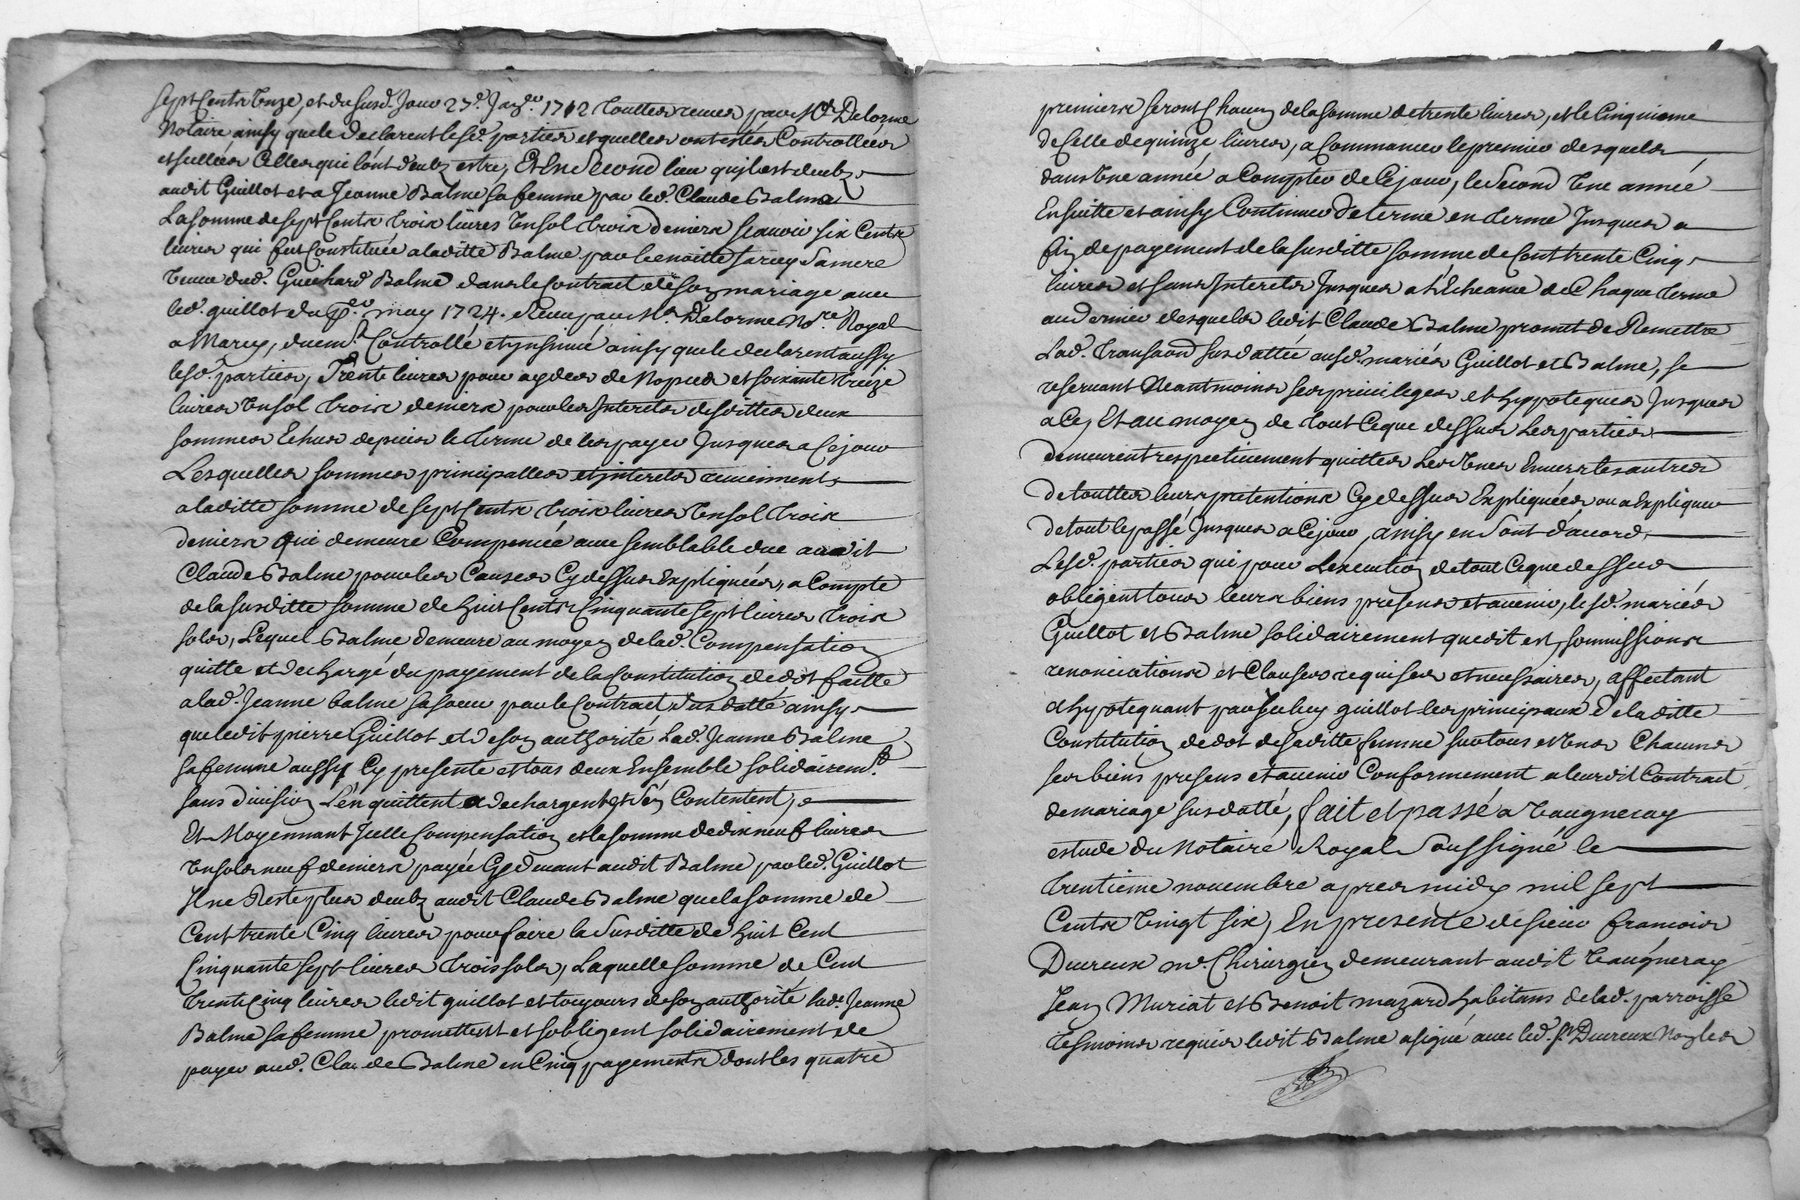 sept Cents Onze, et du susd. Jour 27e. Janer. 1712 touttes receues par Me. Delorme
Notaire ainsy que le declarent lesd. parties et quelles ont estés Controllées
et sellées Celles qui l'ont deub estre, Et En Second lieu qu'il est deub
audit Guillot et a Jeanne Balme sa femme par led. Claude Balme
La somme de sept Cents trois livres Un sol trois deniers scavoir six Cents
livres qui fut Constituée a laditte Balme par benoitte sa mere
veuve dud. Guichard Balme dans le Contract de son mariage avec
led. guillot du may 1724. Receu par Me. Delorme Nore. Royal
a Marcy, duemt. Controllé et ynsinué ainsy que le declarent aussy
lesd. parties, Trente livres pour aydes de Nopces et soixante treize
livres Un sol trois deniers pour les Interets desdittes deux
sommes Echus depuis le terme de les payer Jusques a Ce jour
Lesquelles sommes principalles et interets reviennent
a laditte somme de sept Cents trois livres Un sol trois
deniers qui demeure Compensée avec semblable due audit
Claude Balme pour les Causes Cy dessus Expliquées, a Compte
de la susditte somme de huit Cents Cinquante sept livres trois
sols, Lequel Balme demeure au moyen de lad. Compensation
quitte et dechargé du payement de la Constitution de dot faitte
a lad. Jeanne balme sa soeur par le Contract susdatté ainsy
que ledit pierre Guillot et de son authorité Lad. Jeanne Balme
sa femme aussy Cy presente et tous deux Ensemble solidairemt.
sans division L'en quittent et dechargent et s'en Contentent,
Et Moyennant Jcelle Compensation et la somme de dix neuf livres
Un sols neuf deniers payée Cy devant audit Balme par led. Guillot
Il ne Reste plus deub audit Claude Balme que la somme de
Cent trente Cinq livres pour faire la Susditte de huit Cent
Cinquante sept livres trois sols, Laquelle somme de Cent
trente Cinq livres ledit guillot et toujours de son authorité lade. Jeanne
Balme sa femme promettent et s'obligent solidairement de
payer aud. Claude Balme en Cinq payements dont les quatre
premiers seront Chacun de la somme de trente livres, et le Cinquieme
de Celle de quinze livres, a Commancer le premier desquels
dans Une année a Compter de Ce jour, le Second Une année
En suitte et ainsy Continuer de terme en terme Jusques a
fin de payement de la susditte somme de Cent trente Cinq
livres et sans Interets Jusques a L'Echeance de Chaque terme
au dernier desquels ledit Claude Balme promet de Remettre
Lad. transaon. susdattée ausd. mariés Guillot et Balme, se
reservant Neantmoins ses privileges et hyppoteques Jusques
a Ce, Et au moyen de tout Ce que dessus Les parties
demeurent respectivement quittes Les Unes Envers les autres
de touttes leurs pretentions Cy dessus Expliquées ou a Expliquer
de tout le passé Jusques a Ce jour, ainsy en sont d'accord
Lesd. parties qui pour L'execution de tout Ce que dessus
obligent tous leurs biens presens et avenir, lesd. mariés
Guillot et Balme solidairement que dit est, sommissions
renonciations et Clauses requises et necessaires, affectant
et hypotequant par Jceluy guillot les principaux de laditte
Constitution de dot de saditte femme sur tous et Uns Chacuns
ses biens presens et avenir Conformement a leurdit Contract
de mariage susdatté, fait et passé a Vaugneray
estude du Notaire Royal Soussigné le
trentieme novembre apres midy mil sept
Cents Vingt six, En presente de sieur francois
Dureux me. Chirurgien demeurant audit Vaugneray
Jean Muriat et Benoit mazard habitans de lad. parroisse
tesmoins requis ledit Balme a signé avec led. sr. Dureux Non les